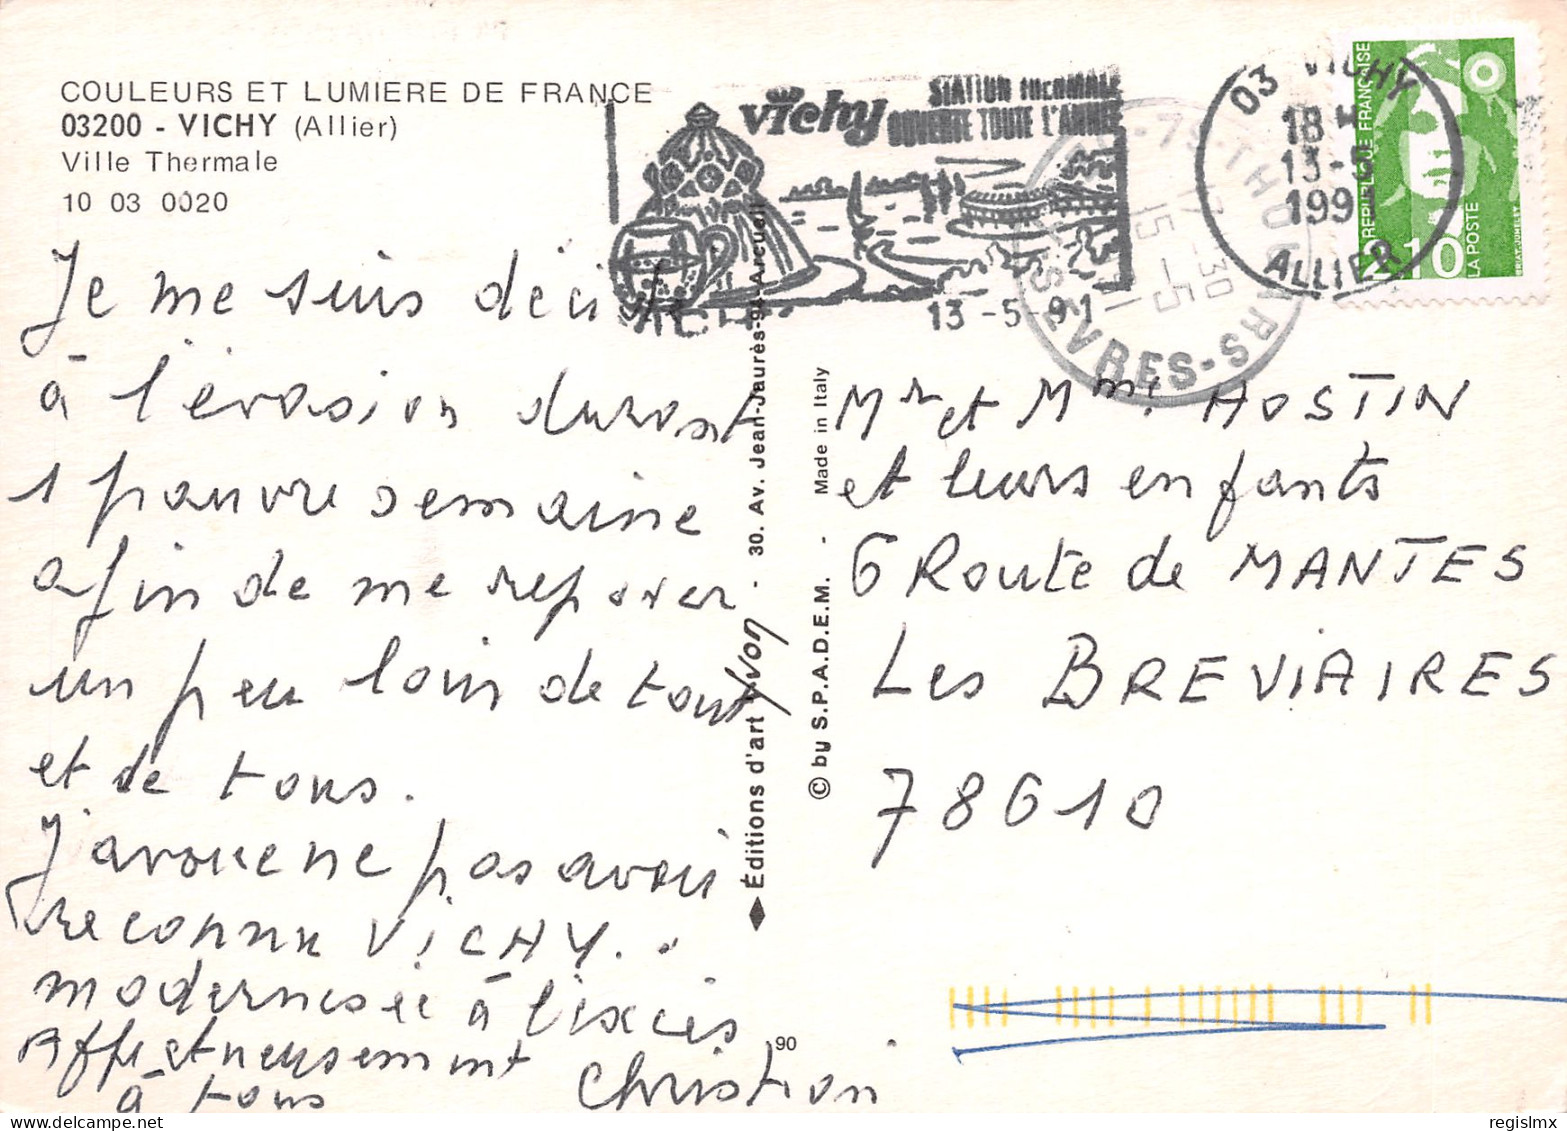 COULEURS ET LUMIERE DE FRANCE
03200 - VICHY (Allier)
Ville Thermale
10 03 0020
vichy
STATION THERMALE
OUVERTE TOUTE L'ANNEE
13 -5 -91
03 VICHY
18 H
13 -5
1991
ALLIER
79-THOUARS
17 -30
15 -5
91
SEVRES-S
REPUBLIQUE FRANÇAISE
2,10
LA POSTE
BRIAT-JUMELET
Je me suis décidé
à l'évasion durant
1 pauvre semaine
afin de me reposer
un peu loin de tout
et de tous.
J'avoue ne pas avoir
reconnu VICHY..
modernisée à l'excès
Affectueusement
à tous
Christian
Éditions d'art Yvon - 30. Av. Jean-Jaurès-94 Arcueil
© by S.P.A.D.E.M. - Made in Italy
90
Mr et Mme HOSTIN
et leurs enfants
6 Route de MANTES
Les BREVIAIRES
78610
regislmx